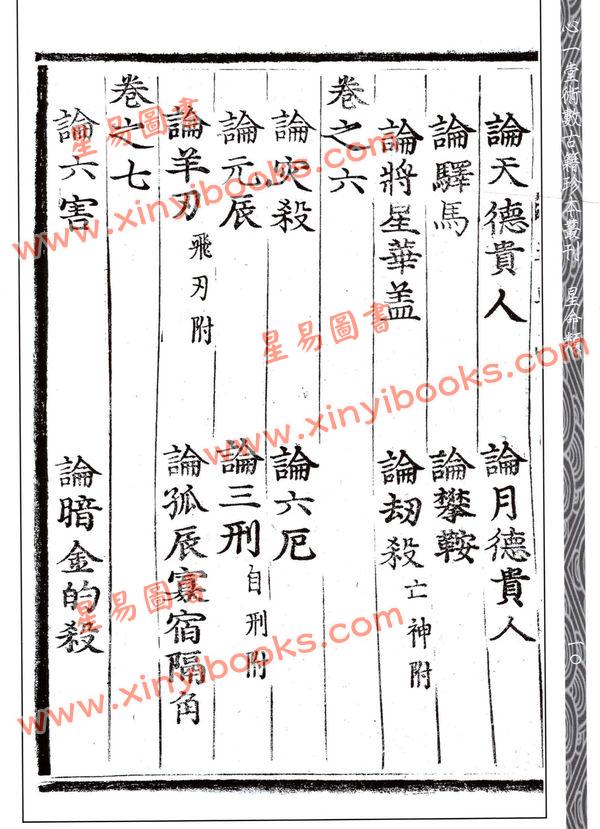 心一堂術數古籍珍本叢刊 星命類
一〇
論天德貴人 論月德貴人
論驛馬 論攀鞍
論將星華盖 論刼殺 亡神附
卷之六
論灾殺 論六厄
論元辰 論三刑 自刑附
論羊刃 飛刃附 論孤辰寡宿隔角
卷之七
論六害 論暗金的殺
星易圖書
www.xinyibooks.com
星易圖書
www.xinyibooks.com
星易圖書
www.xinyibooks.com
星易圖書
www.xinyibooks.com